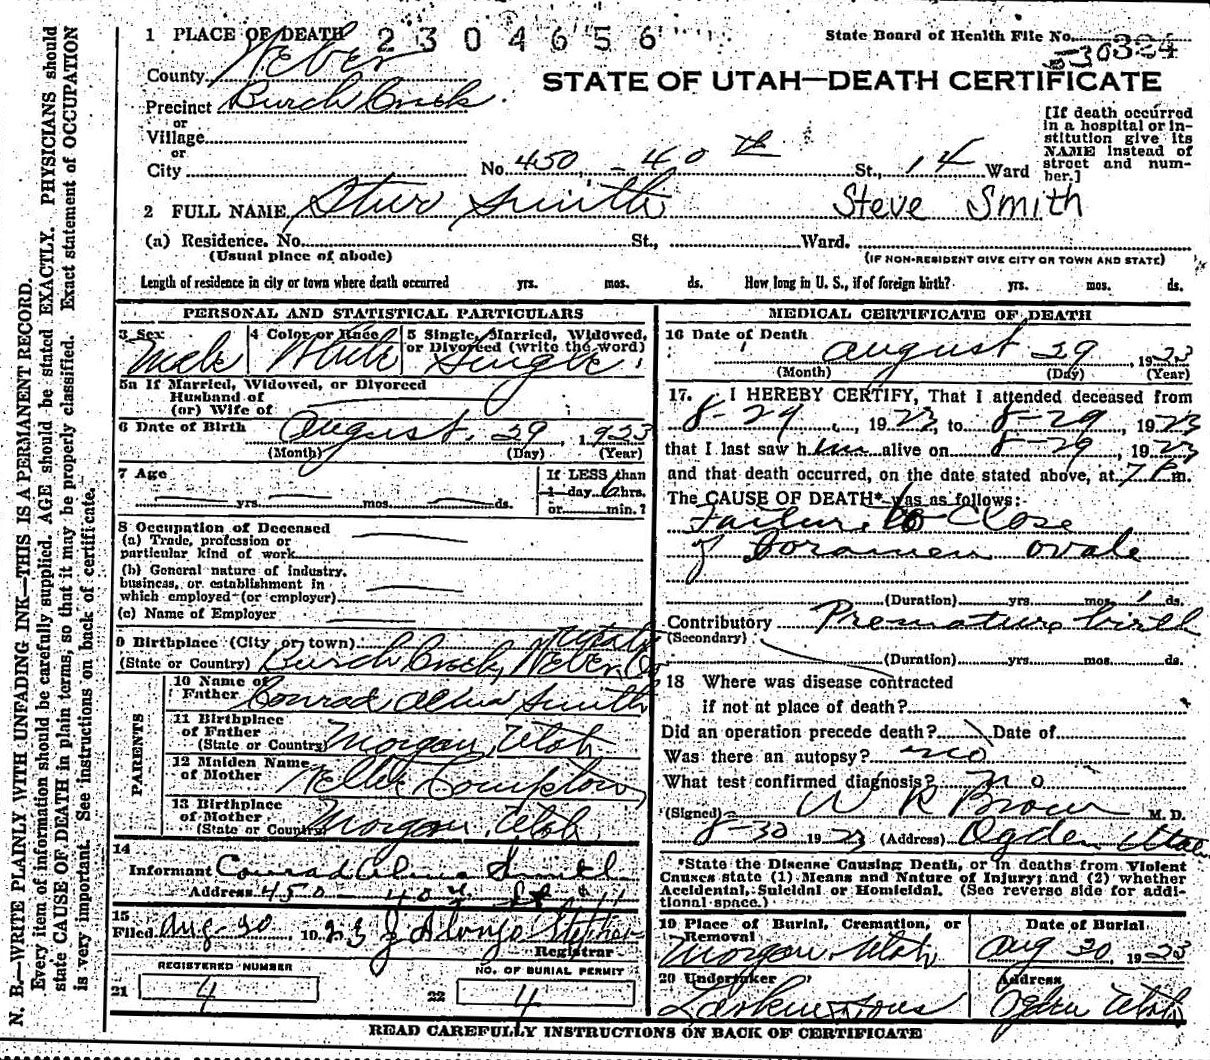 1 PLACE OF DEATH 2304656
State Board of Health File No. 324
530
County Weber
STATE OF UTAH—DEATH CERTIFICATE
Precinct Burch Creek
or
Village
or
City
No. 450 - 40th St., 14 Ward
[If death occurred in a hospital or institution give its NAME instead of street and number.]
2 FULL NAME Steve Smith Steve Smith
(a) Residence. No. St., Ward.
(Usual place of abode)
(IF NON-RESIDENT GIVE CITY OR TOWN AND STATE)
Length of residence in city or town where death occurred yrs. mos. ds. How long in U. S., if of foreign birth? yrs. mos. ds.
PERSONAL AND STATISTICAL PARTICULARS
3 Sex Male
4 Color or Race White
5 Single, Married, Widowed, or Divorced (write the word) Single
5a If Married, Widowed, or Divorced
Husband of
(or) Wife of
6 Date of Birth August 29, 1923
(Month) (Day) (Year)
7 Age yrs. mos. ds.
If LESS than
1 day 6 hrs.
or min.?
8 Occupation of Deceased
(a) Trade, profession or
particular kind of work
(b) General nature of industry,
business, or establishment in
which employed (or employer)
(c) Name of Employer
9 Birthplace (City or town)
(State or Country) Burch Creek, Weber Co Utah
PARENTS
10 Name of
Father Conrad Alma Smith
11 Birthplace
of Father
(State or Country) Morgan, Utah
12 Maiden Name
of Mother Nellie Compton
13 Birthplace
of Mother
(State or Country) Morgan, Utah
14
Informant Conrad Alma Smith
Address 450 40th St
15
Filed Aug-30 1923 J Alonzo
Registrar
REGISTERED NUMBER
21 4
NO. OF BURIAL PERMIT
22 4
MEDICAL CERTIFICATE OF DEATH
16 Date of Death
August 29, 1923
(Month) (Day) (Year)
17. I HEREBY CERTIFY, That I attended deceased from
8-29, 1923, to 8-29, 1923
that I last saw him alive on 8-29, 1923
and that death occurred, on the date stated above, at 7 P m.
The CAUSE OF DEATH* was as follows:
Failure to Close
of Foramen ovale
(Duration) yrs. mos. 1 ds.
Contributory Premature birth
(Secondary)
(Duration) yrs. mos. ds.
18 Where was disease contracted
if not at place of death?
Did an operation precede death? Date of
Was there an autopsy? no
What test confirmed diagnosis? no
(Signed) W R Brown M. D.
8-30 1923 (Address) Ogden Utah
*State the Disease Causing Death, or in deaths from Violent
Causes state (1) Means and Nature of Injury; and (2) whether
Accidental, Suicidal or Homicidal. (See reverse side for addi-
tional space.)
19 Place of Burial, Cremation, or
Removal
Morgan, Utah
Date of Burial
Aug 30, 1923
20 Undertaker
Larkin & Sons
Address
Ogden Utah
READ CAREFULLY INSTRUCTIONS ON BACK OF CERTIFICATE
N. B.—WRITE PLAINLY WITH UNFADING INK—THIS IS A PERMANENT RECORD.
Every item of information should be carefully supplied. AGE should be stated EXACTLY. PHYSICIANS should
state CAUSE OF DEATH in plain terms, so that it may be properly classified. Exact statement of OCCUPATION
is very important. See instructions on back of certificate.